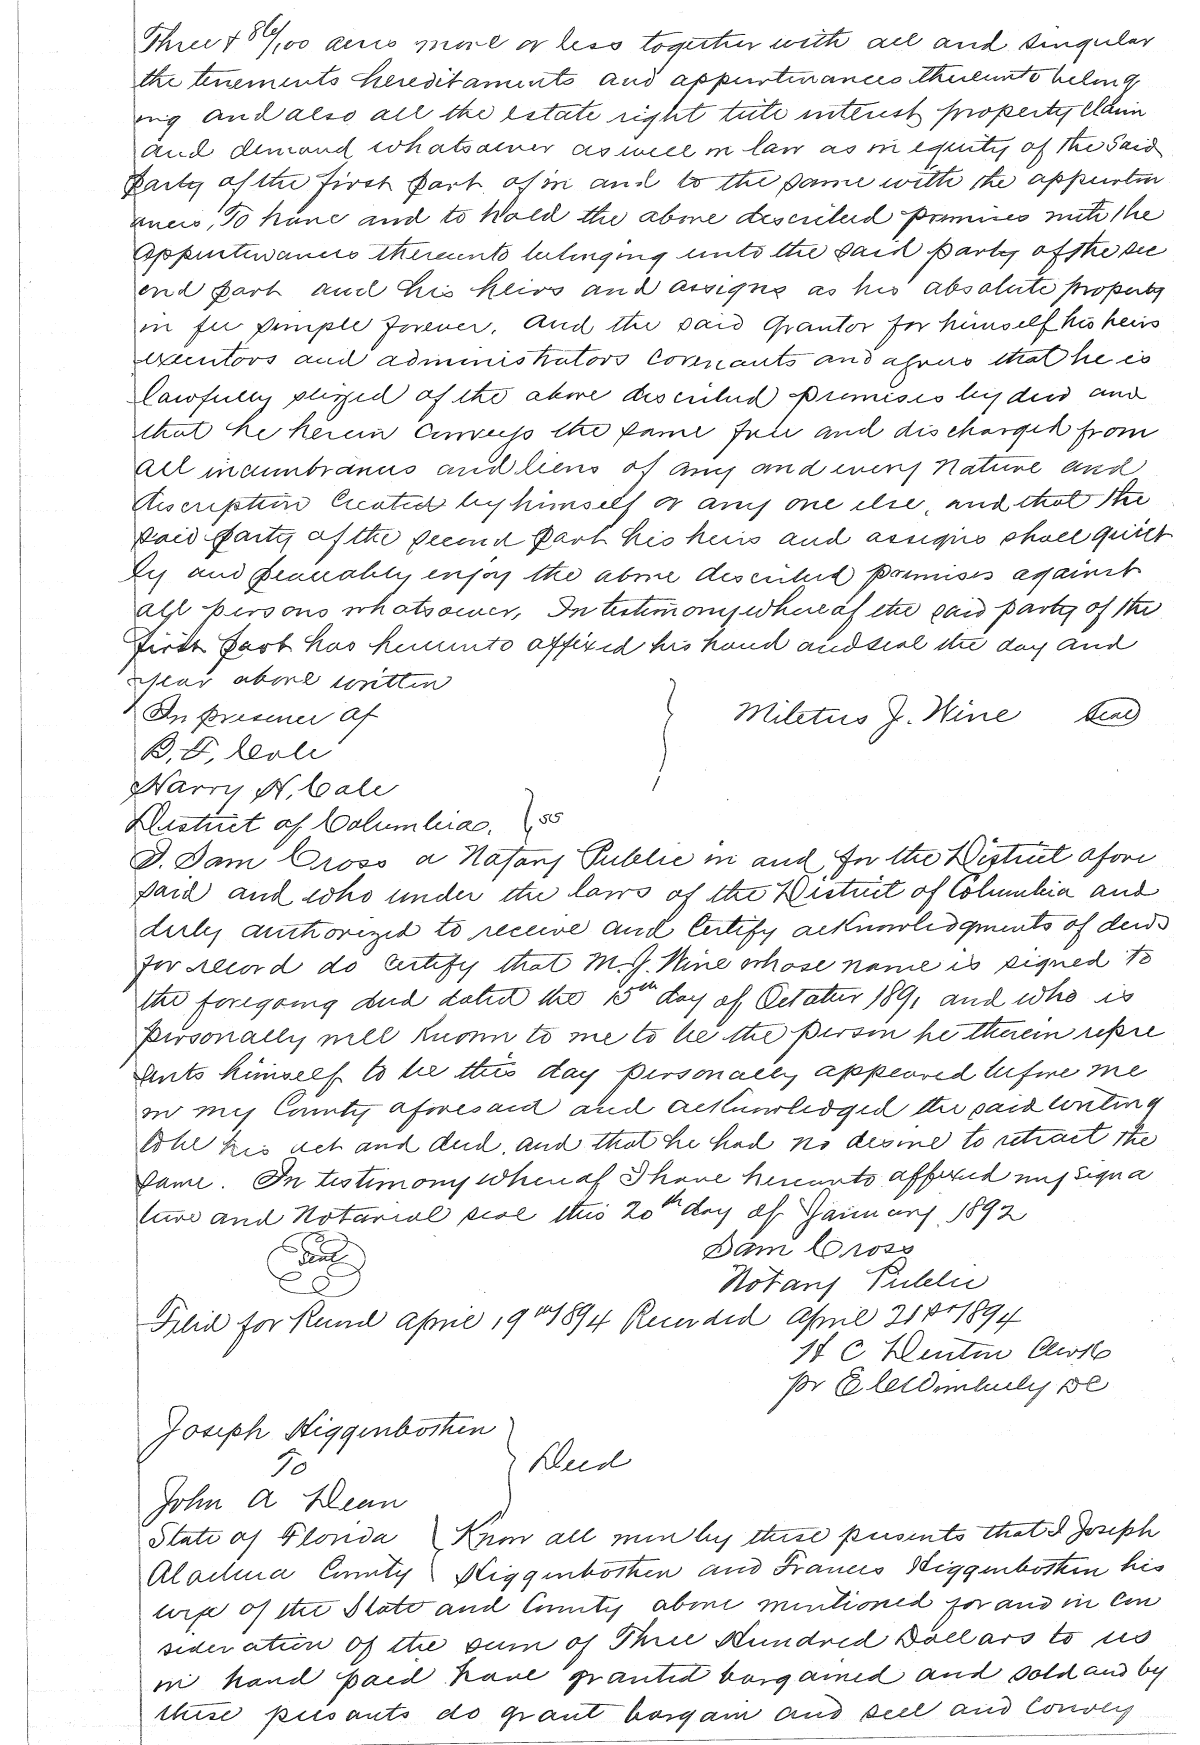 Three & 86/100 acres more or less together with all and singular
the tenements hereditaments and appurtenances thereunto belong
ing and also all the estate right title interest property claim
and demand whatsoever as well in law as in equity of the said
party of the first part of in and to the same with the appurten
ances, To have and to hold the above described premises with the
appurtenances thereunto belonging unto the said party of the sec
ond part and his heirs and assigns as his absolute property
in fee simple forever. And the said grantor for himself his heirs
executors and administrators covenants and agrees that he is
lawfully seized of the above described premises by deed and
that he herein conveys the same free and discharged from
all incumbrances and liens of any and every nature and
discription created by himself or any one else, and that the
said party of the second part his heirs and assigns shall quiet
ly and peaceably enjoy the above described premises against
all persons whatsoever, In testimony whereof the said party of the
first part has hereunto affixed his hand and seal the day and
year above written
In presence of
Miletus J. Wine Seal
B. F. Cole
Harry H. Cale
District of Columbia, } ss
I. Sam Cross a Notary Public in and for the District afore
said and who under the laws of the District of Columbia and
duly authorized to receive and certify acknowledgments of deeds
for record do certify that M. J. Wine whose name is signed to
the foregoing deed dated the 15th day of October 1891 and who is
personally well known to me to be the person he therein repre
sents himself to be this day personally appeared before me
in my County aforesaid and acknowledged the said writing
to be his act and deed. and that he had no desire to retract the
same. In testimony whereof I have hereunto affixed my signa
ture and Notarial seal this 20th day of January 1892
Seal
Sam Cross
Notary Public
Filed for Record April 19th 1894 Recorded April 21st 1894
H C Denton Clerk
pr E C Wimberly DC
Joseph Higgenbothen
To } Deed
John A Dean
State of Florida } Know all men by these presents that I Joseph
Alachua County } Higgenbothen and Frances Higgenbothen his
wife of the State and County above mentioned for and in con
sideration of the sum of Three Hundred Dollars to us
in hand paid have granted bargained and sold and by
these presants do grant bargain and sell and convey